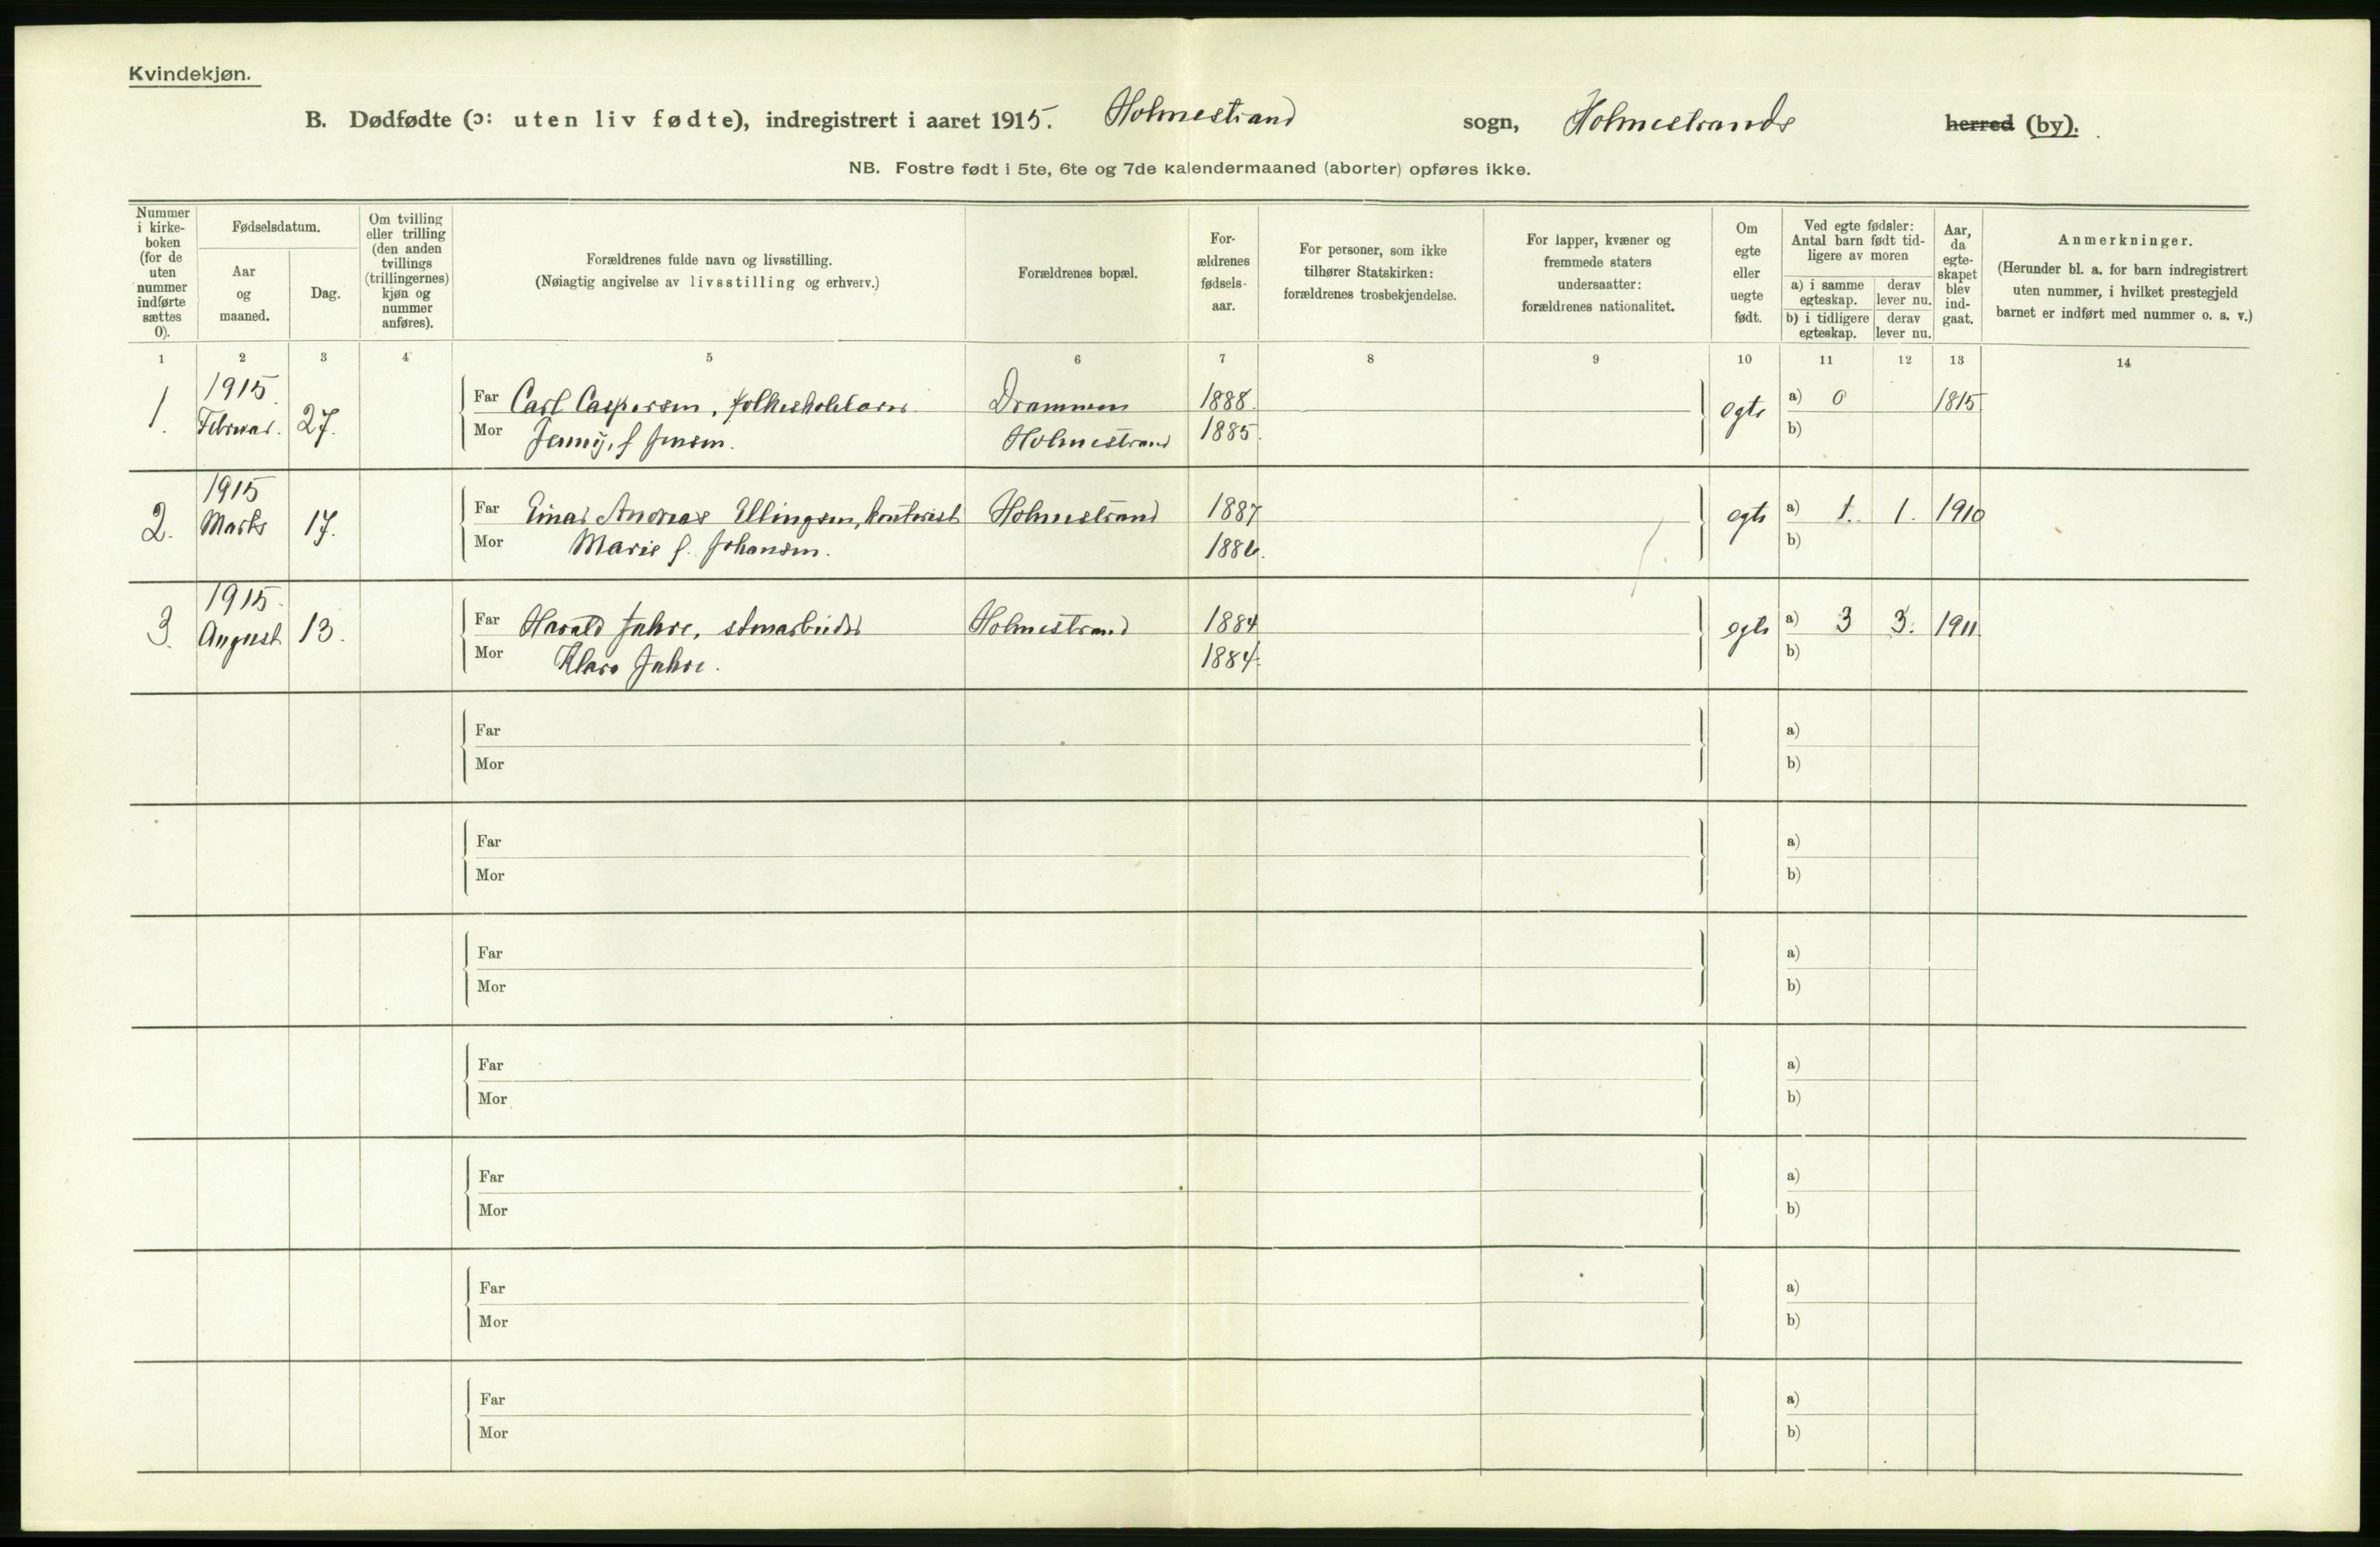 Kvindekjøn.
B. Dødfødte (ɔ: uten liv fødte), indregistrert i aaret 1915. Holmestrand sogn, Holmestrands herred (by).
NB. Fostre født i 5te, 6te og 7de kalendermaaned (aborter) opføres ikke.
Nummer i kirke-boken (for de uten nummer indførte sættes 0).
Fødselsdatum.
Aar og maaned.
Dag.
Om tvilling eller trilling (den anden tvillings (trillingernes) kjøn og nummer anføres).
Forældrenes fulde navn og livsstilling.
(Nøiagtig angivelse av livsstilling og erhverv.)
Forældrenes bopæl.
For-ældrenes fødsels-aar.
For personer, som ikke tilhører Statskirken: forældrenes trosbekjendelse.
For lapper, kvæner og fremmede staters undersaatter: forældrenes nationalitet.
Om egte eller uegte født.
Ved egte fødsler: Antal barn født tid-ligere av moren
a) i samme egteskap.
derav lever nu.
b) i tidligere egteskap.
derav lever nu.
Aar, da egte-skapet blev ind-gaat.
Anmerkninger.
(Herunder bl. a. for barn indregistrert uten nummer, i hvilket prestegjeld barnet er indført med nummer o. s. v.)
1 2 3 4 5 6 7 8 9 10 11 12 13 14
1. 1915 Februar. 27. Far Carl Caspersen, folkeskolelærer Drammen 1888. egte a) 0 1815
Mor Jenny, f Jensen. Holmestrand 1885. b)
2. 1915 Marts 17. Far Einar Andreas Ellingsen, kontorist Holmestrand 1887 egte a) 1. 1. 1910
Mor Marie f. Johansen. 1886. b)
3. 1915. August 13. Far Harald Jahre, stenarbeider Holmestrand 1884 egte a) 3 3. 1911.
Mor Klara Jahre. 1884. b)
Far a)
Mor b)
Far a)
Mor b)
Far a)
Mor b)
Far a)
Mor b)
Far a)
Mor b)
Far a)
Mor b)
Far a)
Mor b)